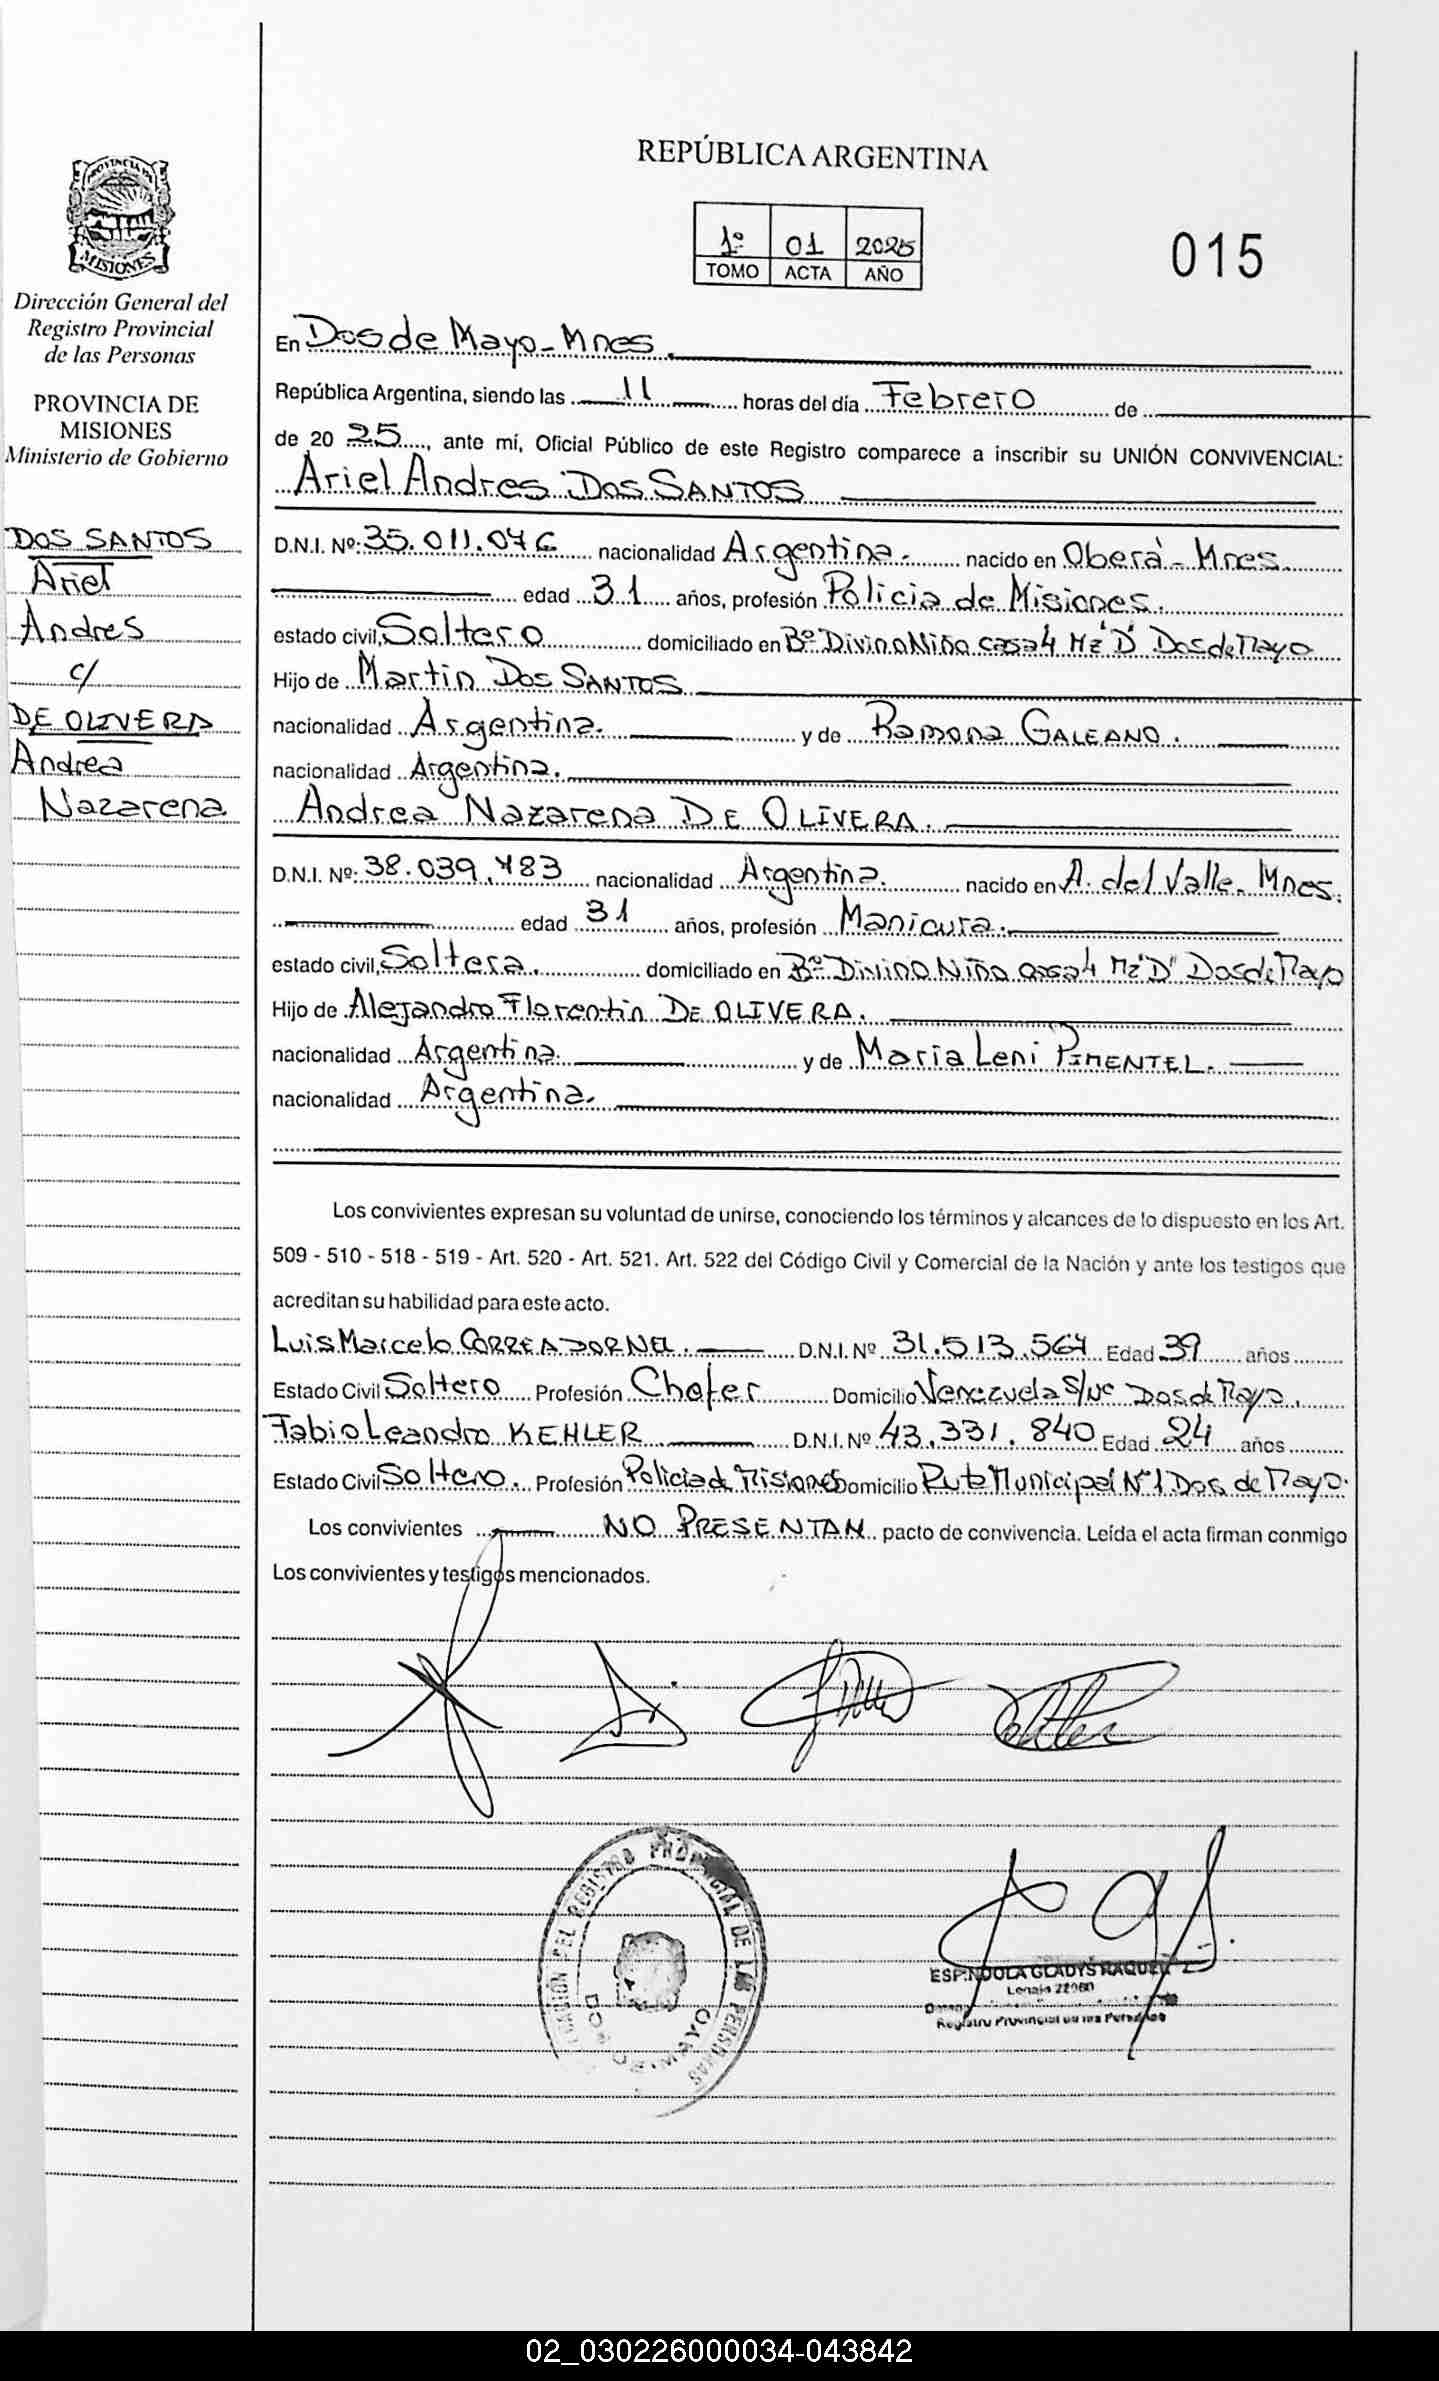 REPÚBLICA ARGENTINA
1º 01 2025
TOMO ACTA AÑO
015
PROVINCIA DE
MISIONES
Dirección General del
Registro Provincial
de las Personas
PROVINCIA DE
MISIONES
Ministerio de Gobierno
DOS SANTOS
Ariel
Andres
c/
DE OLIVERA
Andrea
Nazarena
En Dos de Mayo - Mnes
República Argentina, siendo las 11 horas del día Febrero de
de 20 25, ante mí, Oficial Público de este Registro comparece a inscribir su UNIÓN CONVIVENCIAL:
Ariel Andres Dos SANTOS
D.N.I. Nº: 35.011.046 nacionalidad Argentina. nacido en Oberá - Mnes.
edad 31 años, profesión Policia de Misiones.
estado civil, Soltero domiciliado en Bº Divino Niño casa 4 Mz "D" Dos de Mayo
Hijo de Martin Dos SANTOS
nacionalidad Argentina. y de Ramona GALEANO.
nacionalidad Argentina.
Andrea Nazarena DE OLIVERA.
D.N.I. Nº: 38.039.483 nacionalidad Argentina. nacido en A. del Valle - Mnes.
edad 31 años, profesión Manicura.
estado civil, Soltera. domiciliado en Bº Divino Niño casa 4 Mz "D" Dos de Mayo
Hijo de Alejandro Florentin DE OLIVERA.
nacionalidad Argentina. y de Maria Leni PIMENTEL.
nacionalidad Argentina.
Los convivientes expresan su voluntad de unirse, conociendo los términos y alcances de lo dispuesto en los Art.
509 - 510 - 518 - 519 - Art. 520 - Art. 521. Art. 522 del Código Civil y Comercial de la Nación y ante los testigos que
acreditan su habilidad para este acto.
Luis Marcelo CORREA DORNEL. D.N.I. Nº 31.513.564 Edad 39 años
Estado Civil Soltero Profesión Chofer Domicilio Venezuela S/Nº Dos de Mayo.
Fabio Leandro KEHLER D.N.I. Nº 43.331.840 Edad 24 años
Estado Civil Soltero. Profesión Policia de Misiones Domicilio Ruta Municipal Nº 1 Dos de Mayo.
Los convivientes NO PRESENTAN pacto de convivencia. Leída el acta firman conmigo
Los convivientes y testigos mencionados.
DEL REGISTRO PROVINCIAL DE LAS PERSONAS
DOS DE MAYO
ESPINDOLA GLADYS RAQUEL
Registro Provincial de las Personas
02_030226000034-043842